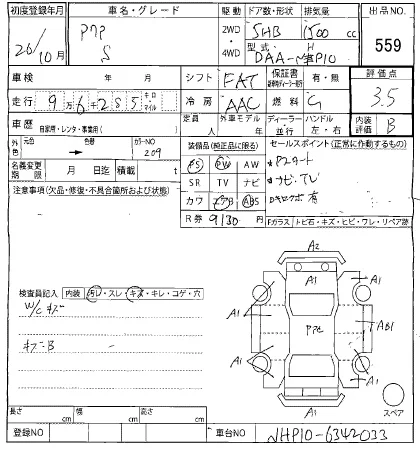 初度登録年月 車名・グレード 駆動 ドア数・形状 排気量 出品NO.
26/10月 アクア S 2WD・4WD 5HB 1500 cc 559
型式 DAA-NHP10
車検 年 月 シフト FAT 保証書 有・無 評価点
走行 9万6千285 キロ・マイル 冷房 AAC 燃料 G 3.5
車歴 自家用・レンタ・事業用( ) 定員 人 外車モデル 年 ディーラー・並行 ハンドル 左・右 内装評価 B
外色 元色 色替 カラーNO 209
装備品(純正品に限る) セールスポイント(正常に作動するもの)
名義変更期限 月 日迄 積載 t
PS PW AW
*Pスタート
注意事項(欠品・修復・不具合箇所および状態)
SR TV ナビ
*ナビ、TV
カワ エアB ABS
R券 9130 円
Fガラス トビ石・キズ・ヒビ・ワレ・リペア跡
A2
A1 A1
検査員記入 内装 汚レ・スレ・キズ・キレ・コゲ・穴
W/Cキズ
A1 アクア AB1
キズB
A1 A1
A1
スペア
長さ cm 幅 cm 高さ cm
登録NO 車台NO NHP10-6342033